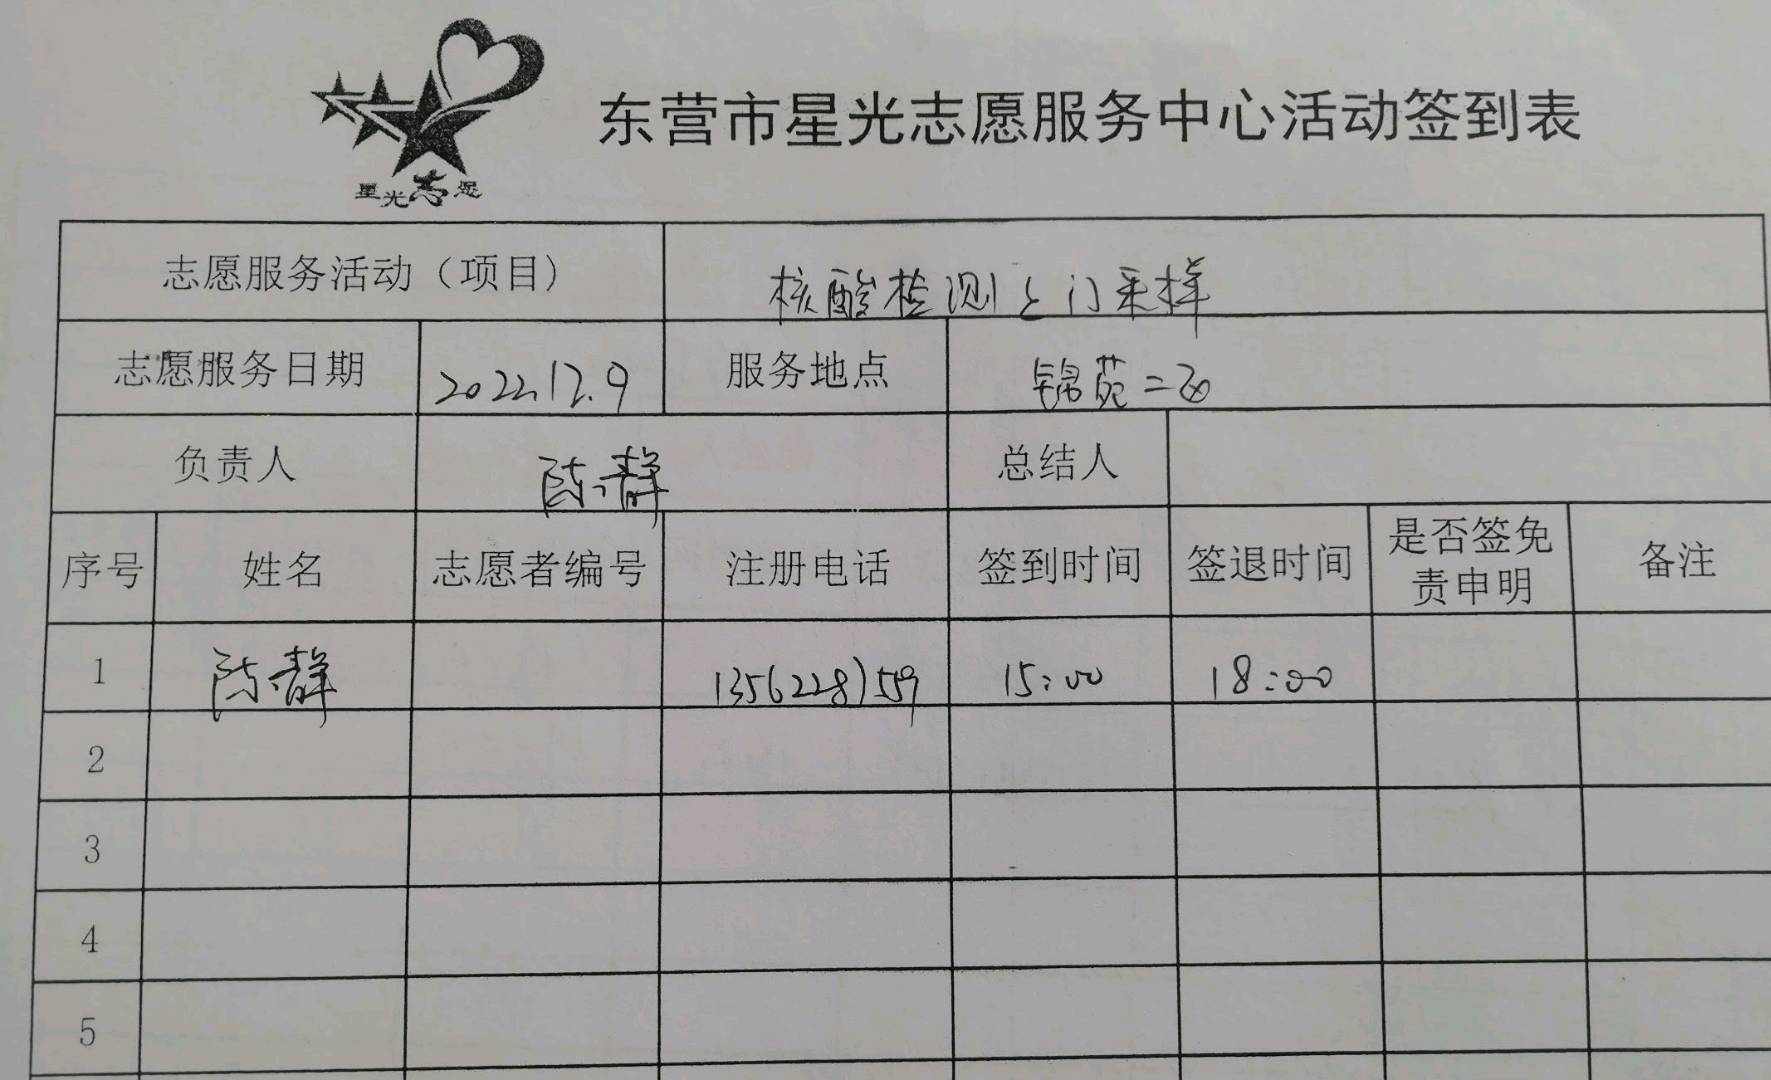 星光志愿
东营市星光志愿服务中心活动签到表
志愿服务活动（项目） 核酸检测上门采样
志愿服务日期 2022.12.9 服务地点 锦苑二区
负责人 陈静 总结人
序号 姓名 志愿者编号 注册电话 签到时间 签退时间 是否签免责申明 备注
1 陈静 13562287559 15:00 18:00
2
3
4
5